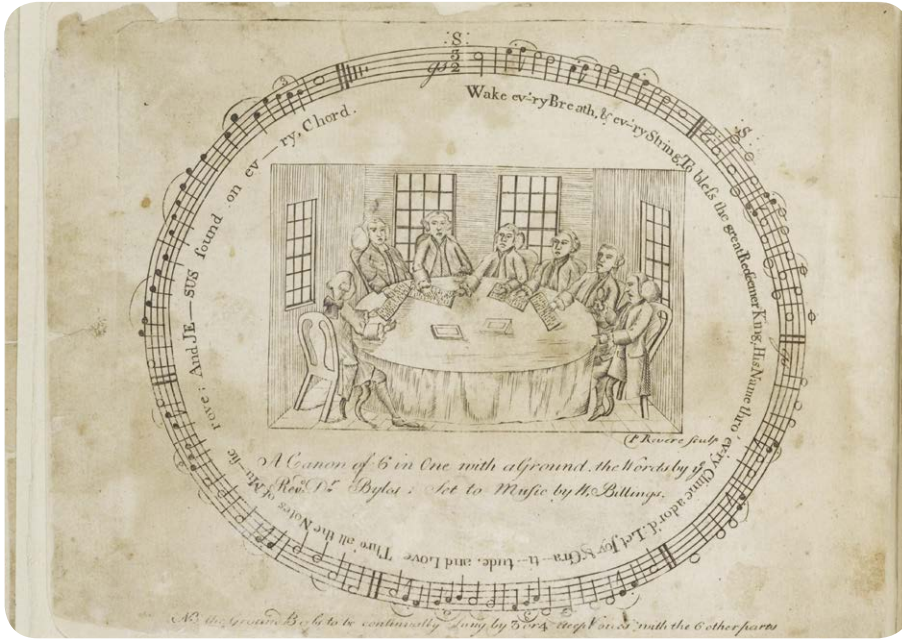 :S:
3
2
Wake ev'ry Breath, & ev'ry String, To bless the great Redeemer King, His Name thro' ev'ry Clime ador'd. Let Joy & Gra—ti—tude, and Love Thro' all the Notes of Mu—sic rove: And JE—SUS found on ev—ry, Chord.
:S:
3
P Revere sculp
A Canon of 6 in One with a Ground. the Words by ye
Revd. Dr. Byles; Set to Music by W. Billings.
NB. the Ground Bass to be continually Sung by 3 or 4 deep Voices with the 6 other parts